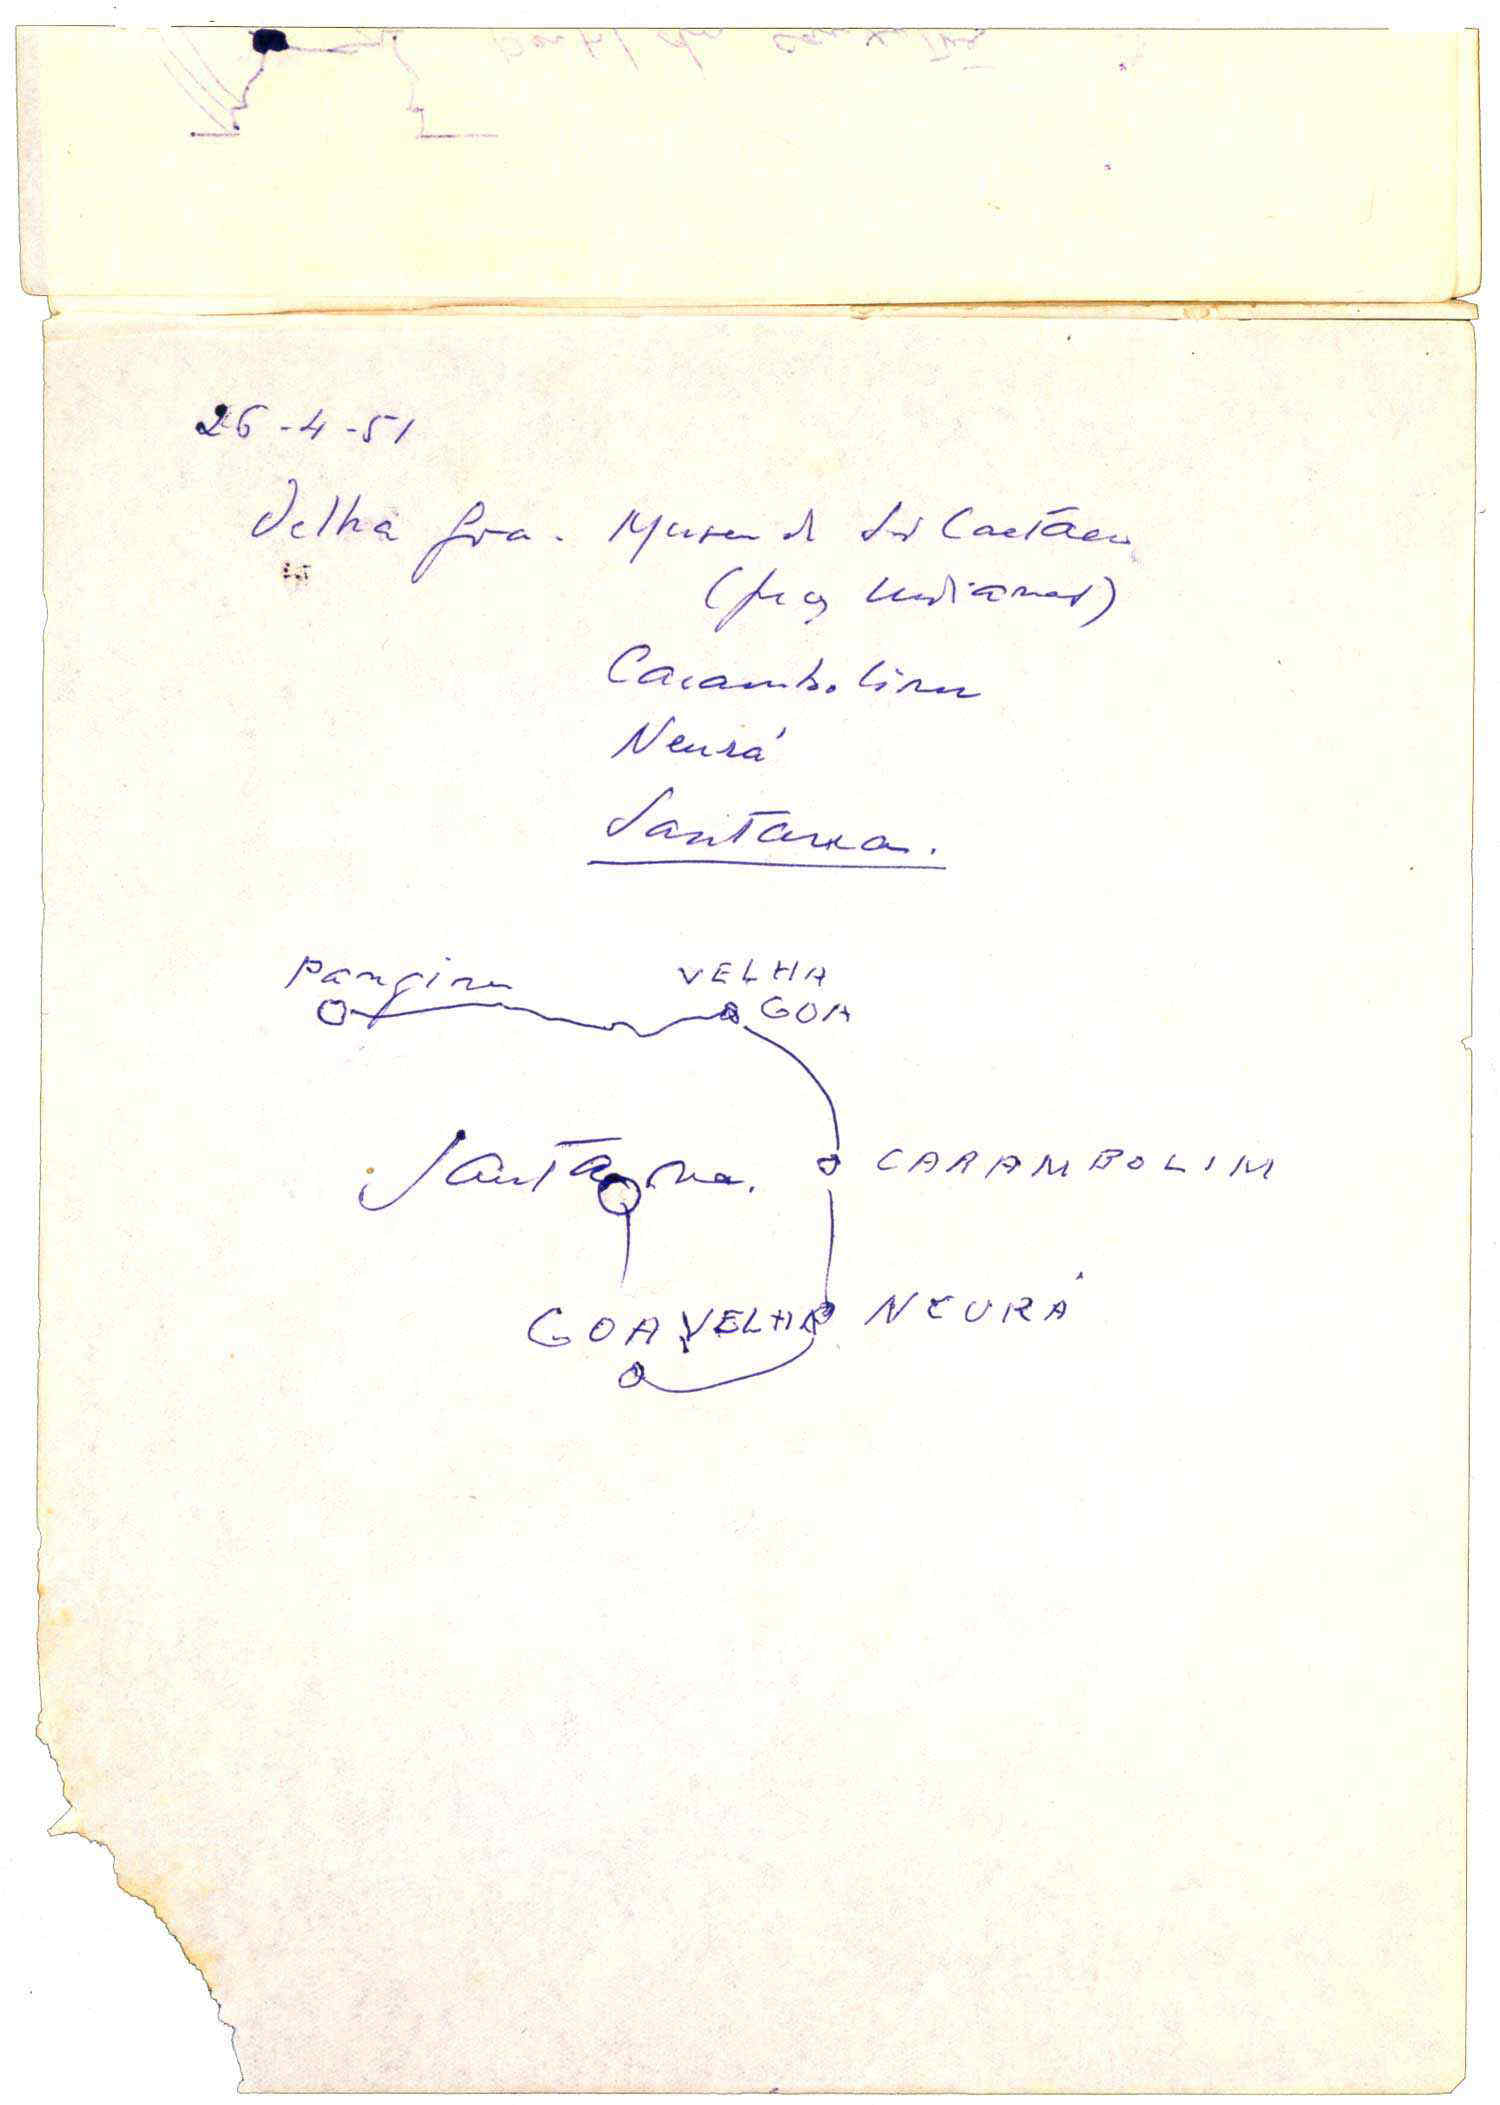 26-4-51
Velha Goa. Museu de São Caetano
(peças indianas)
Carambolim
Neurá
Santana.
Pangim
VELHA
GOA
Santana.
CARAMBOLIM
GOA VELHA
NEURÁ